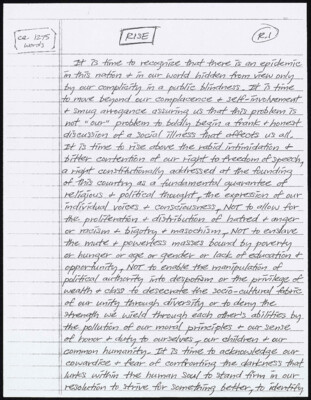 ca. 1275 words
RISE
R.1
It is time to recognize that there is an epidemic
in this nation + in our world hidden from view only
by our complicity in a public blindness. It is time
to move beyond our complacence + self-involvement
+ smug arrogance assuring us that this problem is
not "our" problem to boldly begin a frank + honest
discussion of a social illness that affects us all.
It is time to rise above the rabid intimidation +
bitter contention of our right to freedom of speech,
a right constitutionally addressed at the founding
of this country as a fundamental guarantee of
religious + political thought, the expression of our
individual voices + consciousness, NOT to allow for
the proliferation + distribution of hatred + anger
or racism + bigotry + masochism, NOT to enslave
the mute + powerless masses bound by poverty
or hunger or age or gender or lack of education +
opportunity, NOT to enable the manipulation of
political authority into despotism or the privilege of
wealth + class to desecrate the socio-cultural fabric
of our unity through diversity or to deny the
strength we wield through each other's abilities by
the pollution of our moral principles + our sense
of honor + duty to ourselves, our children + our
common humanity. It is time to acknowledge our
cowardice + fear of confronting the darkness that
lurks within the human soul to stand firm in our
resolution to strive for something better, to identify